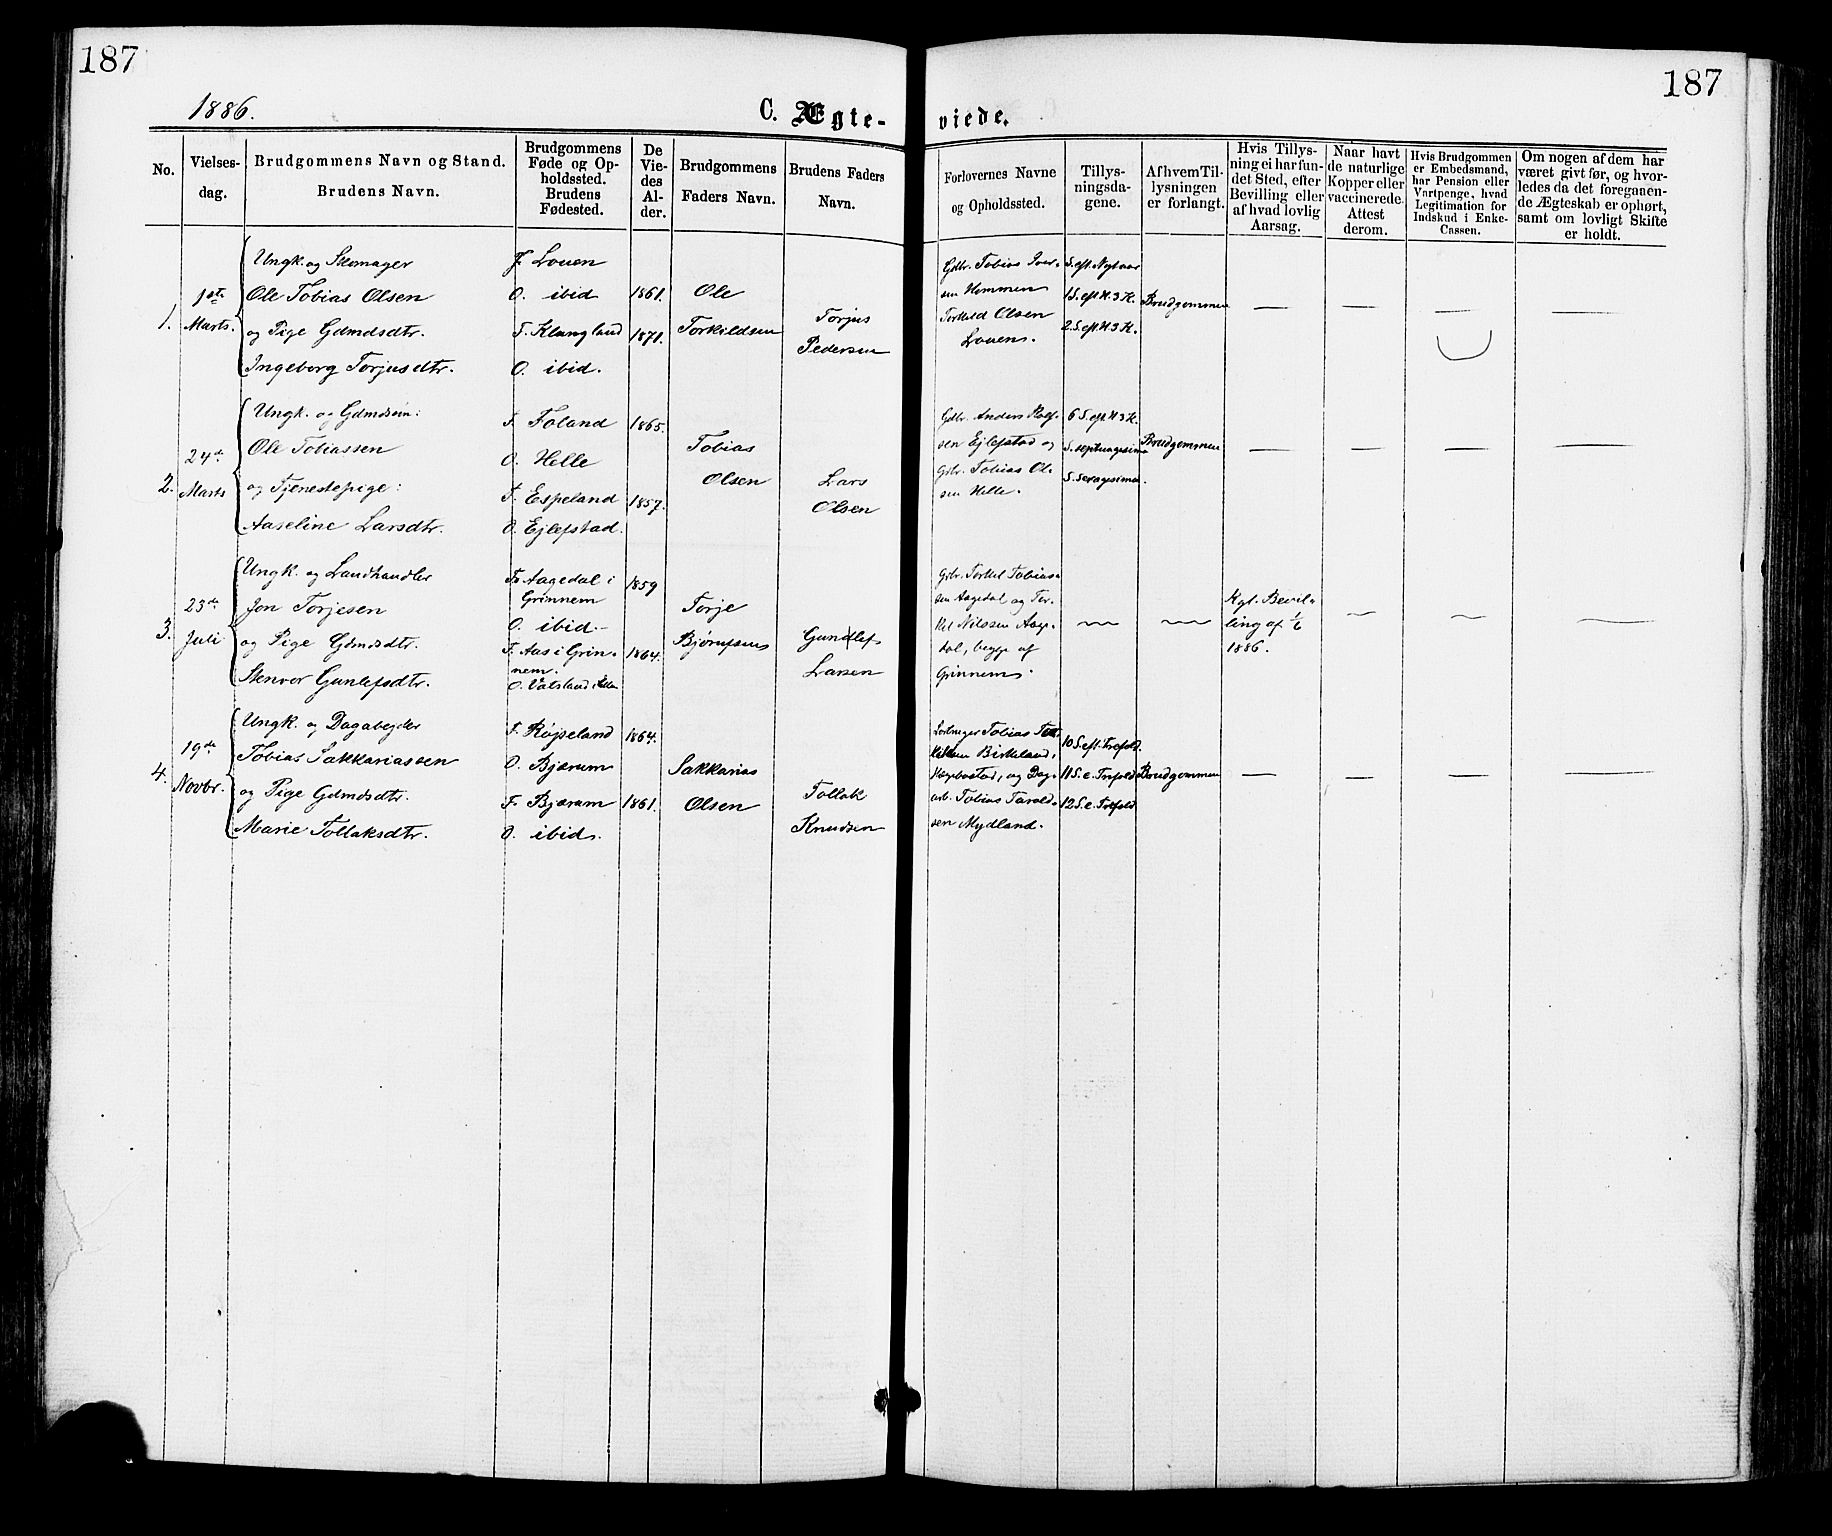 187
187
1886.
C. Ægte-
viede.
No.
Vielses-
dag.
Brudgommens Navn og Stand.
Brudens Navn.
Brudgommens
Føde og Op-
holdssted.
Brudens
Fødested.
De
Vie-
des
Al-
der.
Brudgommens
Faders Navn.
Brudens Faders
Navn.
Forlovernes Navne
og Opholdssted.
Tillys-
ningsda-
gene.
Af hvem Til-
lysningen
er forlangt.
Hvis Tillys-
ning ei har fun-
det Sted, efter
Bevilling eller
af hvad lovlig
Aarsag.
Naar havt
de naturlige
Kopper eller
vaccinerede.
Attest
derom.
Hvis Brudgommen
er Embedsmand,
har Pension eller
Vartpenge, hvad
Legitimation for
Indskud i Enke-
Cassen.
Om nogen af dem har
været givt før, og hvor-
ledes da det foregaaen-
de Ægteskab er ophørt,
samt om lovligt Skifte
er holdt.
1.
1ste
Marts.
Ungk. og Skomager
Ole Tobias Olsen
og Pige Gdmdsdtr.
Ingeborg Torjusdtr.
F. Louen
O. ibid
F. Klungland
O. ibid.
1861.
1871.
Ole
Torkildsen
Torjus
Pedersen
Gdbr. Tobias Iver-
sen Hommen
Torkild Olsen
Louen.
S. eft. Nytaar
1 S. eft H. 3 K.
2 S. eft H 3 K.
Brudgommen
— — —
2.
24de
Marts
Ungk. og Gdmdsøn:
Ole Tobiassen
og Tjenestepige:
Aaseline Larsdtr.
F. Foland
O. Helle
F. Espeland
O. Ejlefstad.
1865.
1857.
Tobias
Olsen
Lars
Olsen
Gdbr. Anders
sen Ejlefstad og
Gdbr. Tobias Ol-
sen Helle.
6 S. eft H 3 K.
S. septuagesima
S. sexagesima.
Brudgommen
— — — —
3.
23de
Juli
Ungk. og Landhandler
Jon Torjesen
og Pige Gdmdsdtr.
Stenvor Gunlefsdtr.
F. Aagedal i
Grinnem
O. ibid.
F. Aas i Grin-
nem.
O. Vatsland i
1859
1864.
Torje
Bjørufsen
Gundlef
Larsen
Gdbr. Torkel Tobias-
sen Aagedal og Tor-
kel Nilssen Aage-
dal, begge af
Grinnem.
— —
Kgl. Bevil-
ling af 1/6
1886.
— — —
4.
19de
Novbr.
Ungk. og Dagabejder
Tobias Sakkariassen
og Pige Gdmdsdtr.
Marie Tollaksdtr.
F. Røjseland
O. Bjærum
F. Bjærum
O. ibid.
1864.
1861.
Sakkarias
Olsen
Tollak
Knudsen
Tobias
Birkeland,
Hægebostad, og Dag-
arb. Tobias Tarald-
sen Mydland.
10 S. eft. Trefold.
11 S. e. Trefold
12 S. e. Trefold
Brudgommen
— — — —